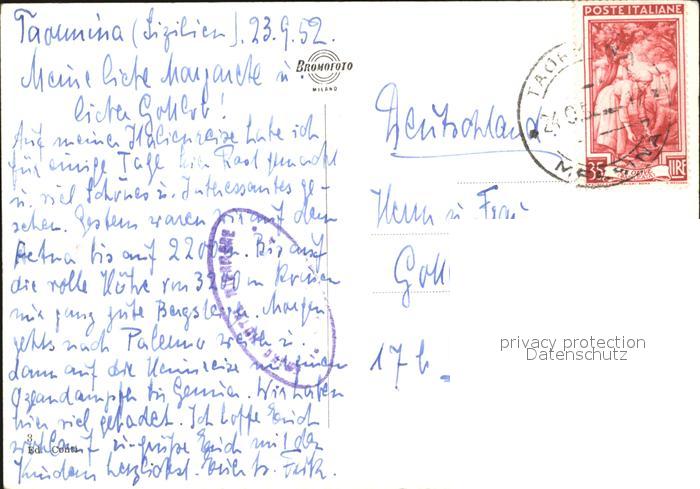 Taormina (Sizilien). 23.9.52.
Meine liebe Margarete u.
lieber Gottlob!
Auf meiner Italienreise habe ich
für einige Tage hier Rast gemacht
u. viel Schönes u. Interessantes ge-
sehen. Gestern waren wir auf dem
Aetna bis auf 2200 m. Bis auf
die volle Höhe von 3200 m können
nur ganz gute Bergsteiger. Morgen
gehts nach Palermo weiter u.
dann auf die Heimreise mit einem
Ozeandampfer bis Genua. Wir haben
hier viel gebadet. Ich hoffe Euch
wohlauf u. grüße Euch mit den
Kindern herzlichst. Euer Fritz.
BROMOFOTO
MILANO
3
Ed.
POSTE ITALIANE
35 LIRE
TAORMINA
MESSINA
Deutschland
Herrn u. Frau
Gottl
17 b
privacy protection
Datenschutz